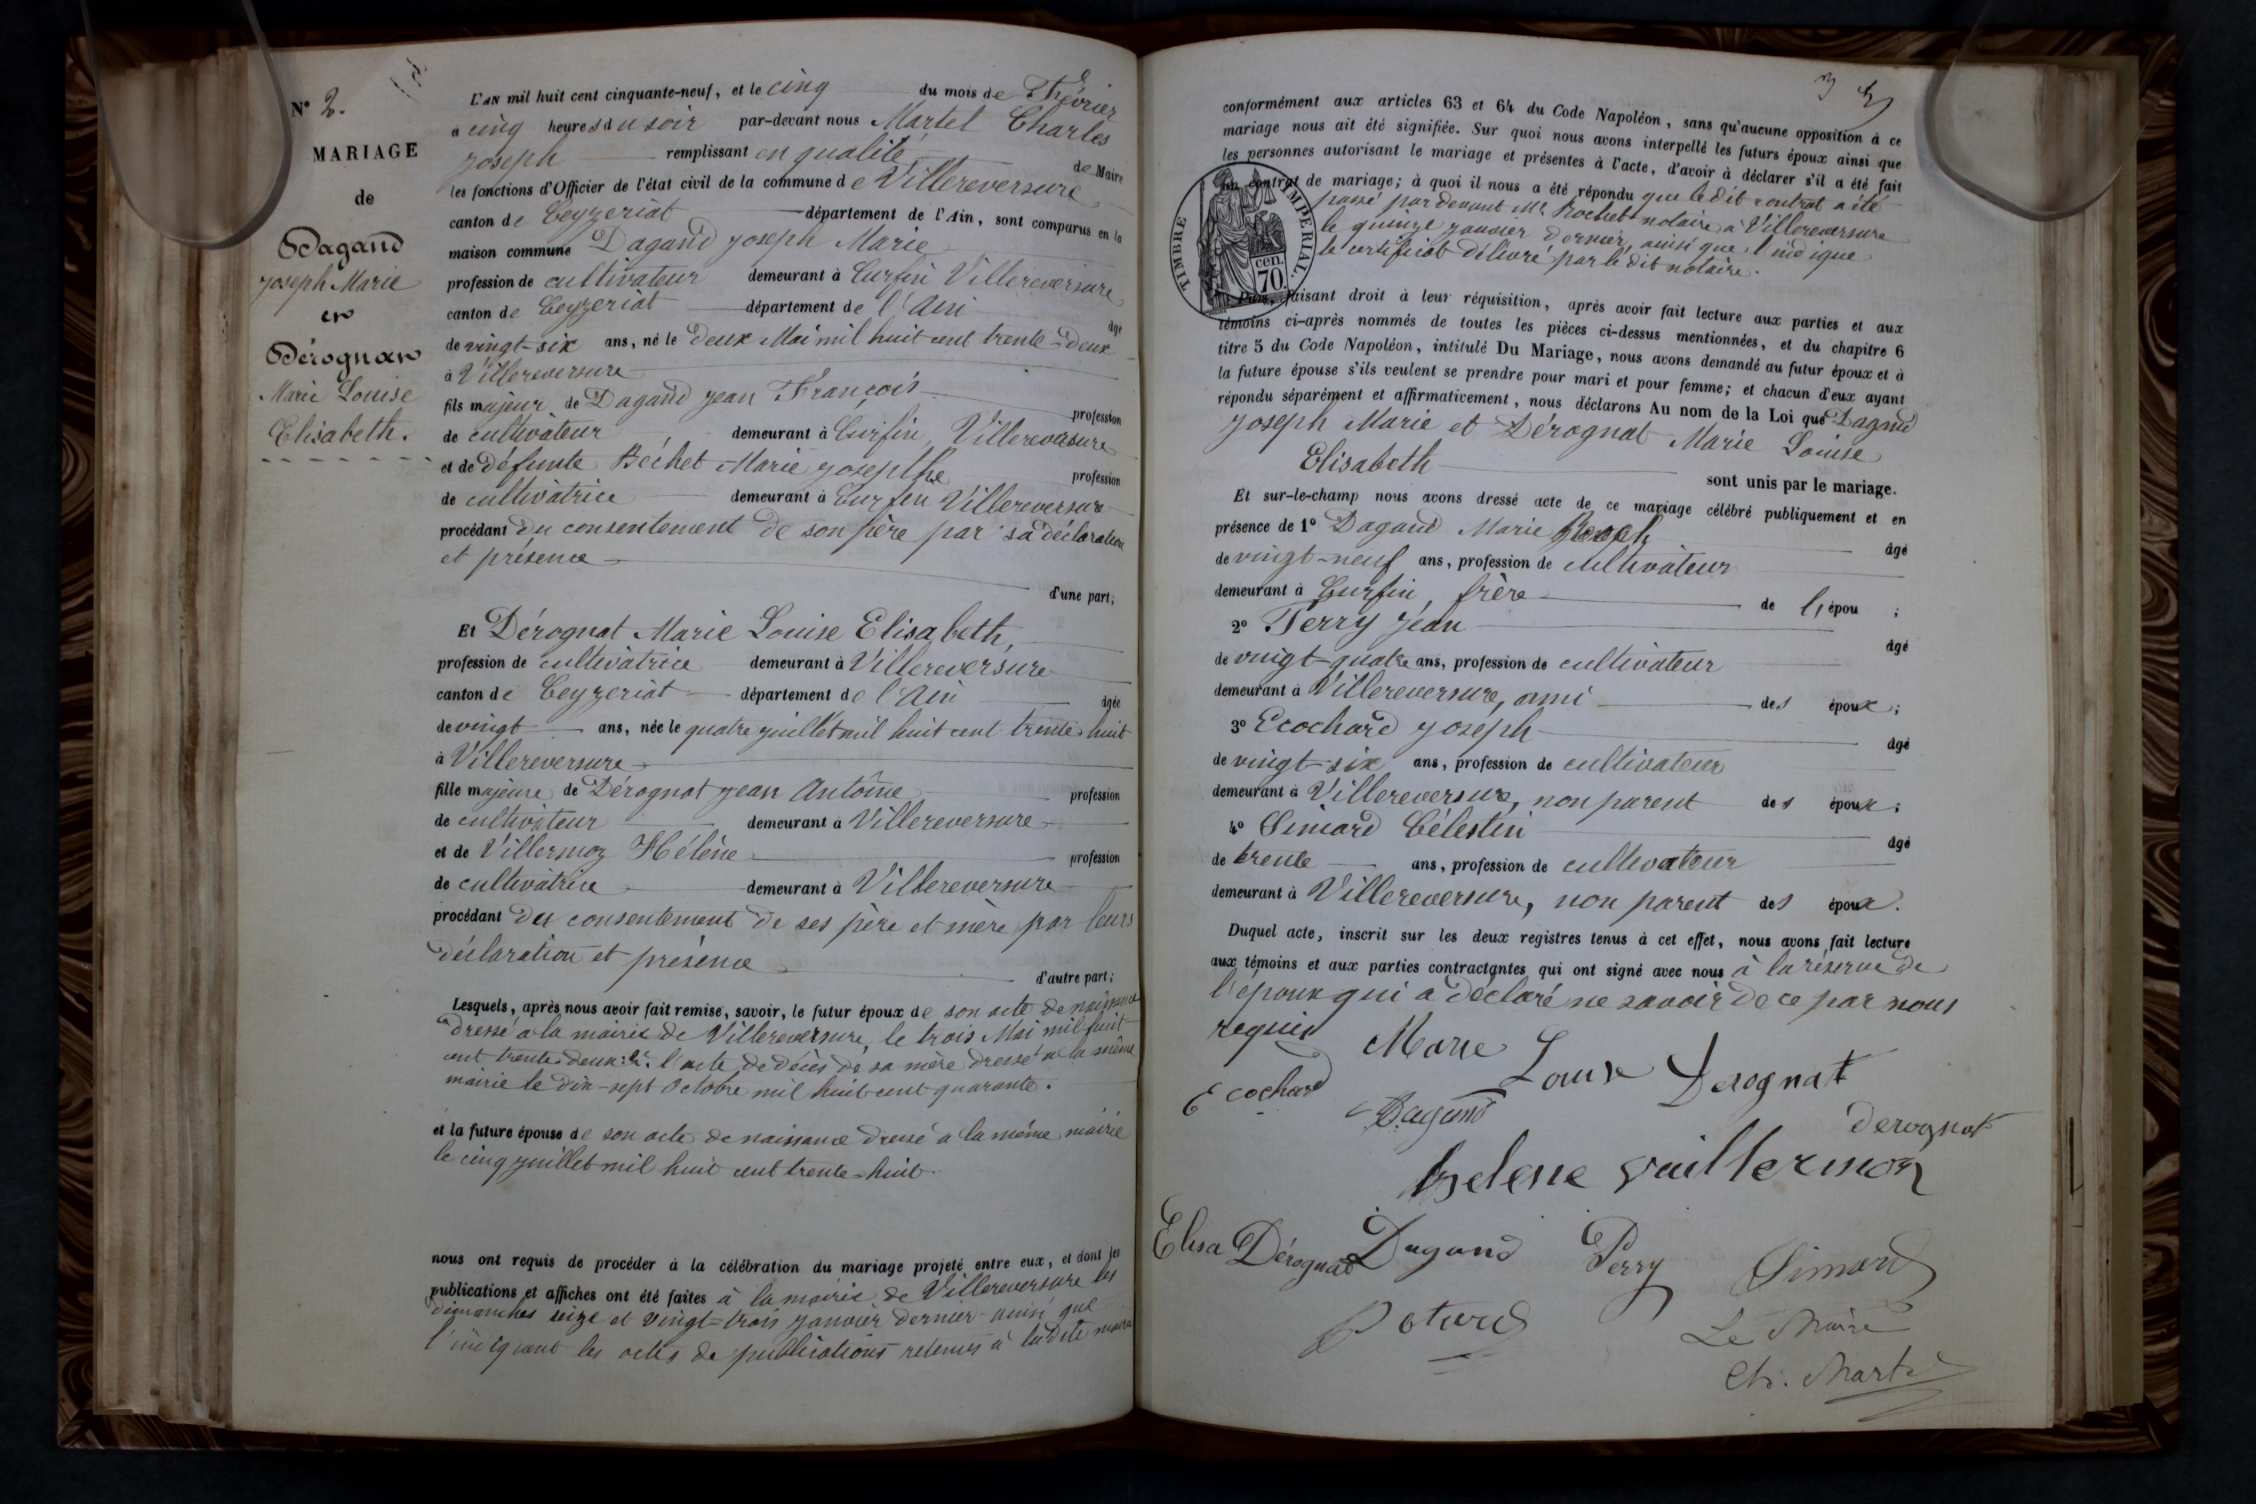 N° 2.
MARIAGE
de
Dagand
Joseph Marie
et
Dérognat
Marie Louise
Elisabeth.
L'AN mil huit cent cinquante-neuf, et le cinq du mois de Février
à cinq heures du soir par-devant nous Martel Charles
Joseph remplissant en qualité de Maire
les fonctions d'Officier de l'état civil de la commune de Villereversure
canton de Ceyzeriat département de l'Ain, sont comparus en la
maison commune Dagand Joseph Marie
profession de cultivateur demeurant à Curfin Villereversure
canton de Ceyzeriat département de l'Ain âgé
de vingt-six ans, né le deux Mai mil huit cent trente-deux
à Villereversure
fils majeur de Dagand Jean François profession
de cultivateur demeurant à Curfin, Villereversure
et de défunte Béchet Marie Josephe profession
de cultivatrice demeurant à Curfin Villereversure
procédant du consentement de son père par sa déclaration
et présence
d'une part;
Et Dérognat Marie Louise Elisabeth,
profession de cultivatrice demeurant à Villereversure
canton de Ceyzeriat département de l'Ain âgée
de vingt ans, née le quatre juillet mil huit cent trente-huit
à Villereversure
fille majeure de Dérognat Jean Antoine profession
de cultivateur demeurant à Villereversure
et de Villermoz Hélène profession
de cultivatrice demeurant à Villereversure
procédant du consentement de ses père et mère par leurs
déclaration et présence
d'autre part;
Lesquels, après nous avoir fait remise, savoir, le futur époux de son acte de naissance
dressé à la mairie de Villereversure, le trois Mai mil huit
cent trente-deux: 2° l'acte de décès de sa mère dressé à la même
mairie le dix-sept Octobre mil huit cent quarante.
et la future épouse de son acte de naissance dressé à la même mairie
le cinq juillet mil huit cent trente-huit.
nous ont requis de procéder à la célébration du mariage projeté entre eux, et dont les
publications et affiches ont été faites à la mairie de Villereversure les
dimanches seize et vingt-trois janvier dernier ainsi que
l'indiquent les actes de publications retenus à ladite mairie
conformément aux articles 63 et 64 du Code Napoléon, sans qu'aucune opposition à ce
mariage nous ait été signifiée. Sur quoi nous avons interpellé les futurs époux ainsi que
les personnes autorisant le mariage et présentes à l'acte, d'avoir à déclarer s'il a été fait
un contrat de mariage; à quoi il nous a été répondu que ledit contrat a été
passé par devant Me Rochet notaire à Villereversure
le quinze janvier dernier, ainsi que l'indique
le certificat délivré par le dit notaire.
TIMBRE IMPERIAL.
70 cen.
Puis, faisant droit à leur réquisition, après avoir fait lecture aux parties et aux
témoins ci-après nommés de toutes les pièces ci-dessus mentionnées, et du chapitre 6
titre 5 du Code Napoléon, intitulé Du Mariage, nous avons demandé au futur époux et à
la future épouse s'ils veulent se prendre pour mari et pour femme; et chacun d'eux ayant
répondu séparément et affirmativement, nous déclarons Au nom de la Loi que Dagand
Joseph Marie et Dérognat Marie Louise
Elisabeth sont unis par le mariage.
Et sur-le-champ nous avons dressé acte de ce mariage célébré publiquement et en
présence de 1° Dagand Marie âgé
de vingt-neuf ans, profession de cultivateur
demeurant à Curfin, frère de l'épou ;
2° Perry Jean âgé
de vingt-quatre ans, profession de cultivateur
demeurant à Villereversure, ami des époux;
3° Ecochard Joseph âgé
de vingt-six ans, profession de cultivateur
demeurant à Villereversure, non parent des époux;
4° Simard Célestin âgé
de trente ans, profession de cultivateur
demeurant à Villereversure, non parent des époux.
Duquel acte, inscrit sur les deux registres tenus à cet effet, nous avons fait lecture
aux témoins et aux parties contractantes qui ont signé avec nous à la réserve de
l'époux qui a déclaré ne savoir de ce par nous
requis
Marie Louise Derognat
Ecochard
Dagand
Derognat
helene vuillermoz
Elisa Dérognat
Dagand
Perry
Simard
Le Maire
Ch. Martel